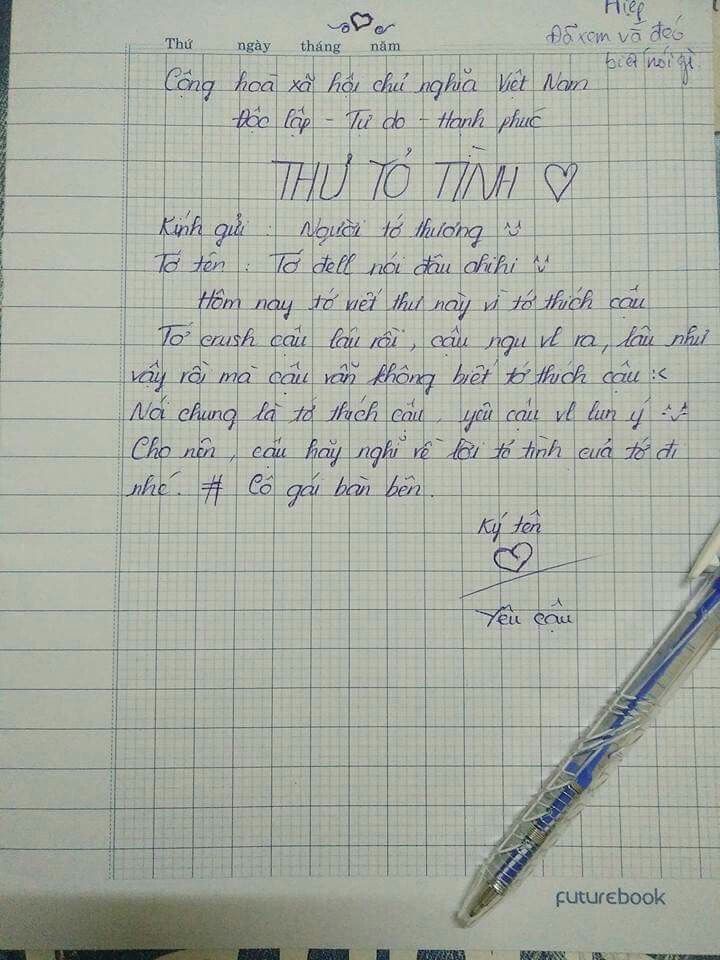 Hiệp
Đã xem và đéo
biết nói gì.
Thứ ngày tháng năm
Cộng hoà xã hội chủ nghĩa Việt Nam
Độc lập - Tự do - Hạnh phúc
THƯ TỎ TÌNH ♡
Kính gửi : Người tớ thương
Tớ tên : Tớ đell nói đâu chihi
Hôm nay tớ viết thư này vì tớ thích cậu
Tớ crush cậu lâu rồi, cậu ngu vl ra, lâu như
vậy rồi mà cậu vẫn không biết tớ thích cậu :<
Nói chung là tớ thích cậu, yêu cậu vl lun ý
Cho nên, cậu hãy nghĩ về lời tỏ tình của tớ đi
nhé. # Cô gái bàn bên.
Ký tên
♡
Yêu cậu
futurebook